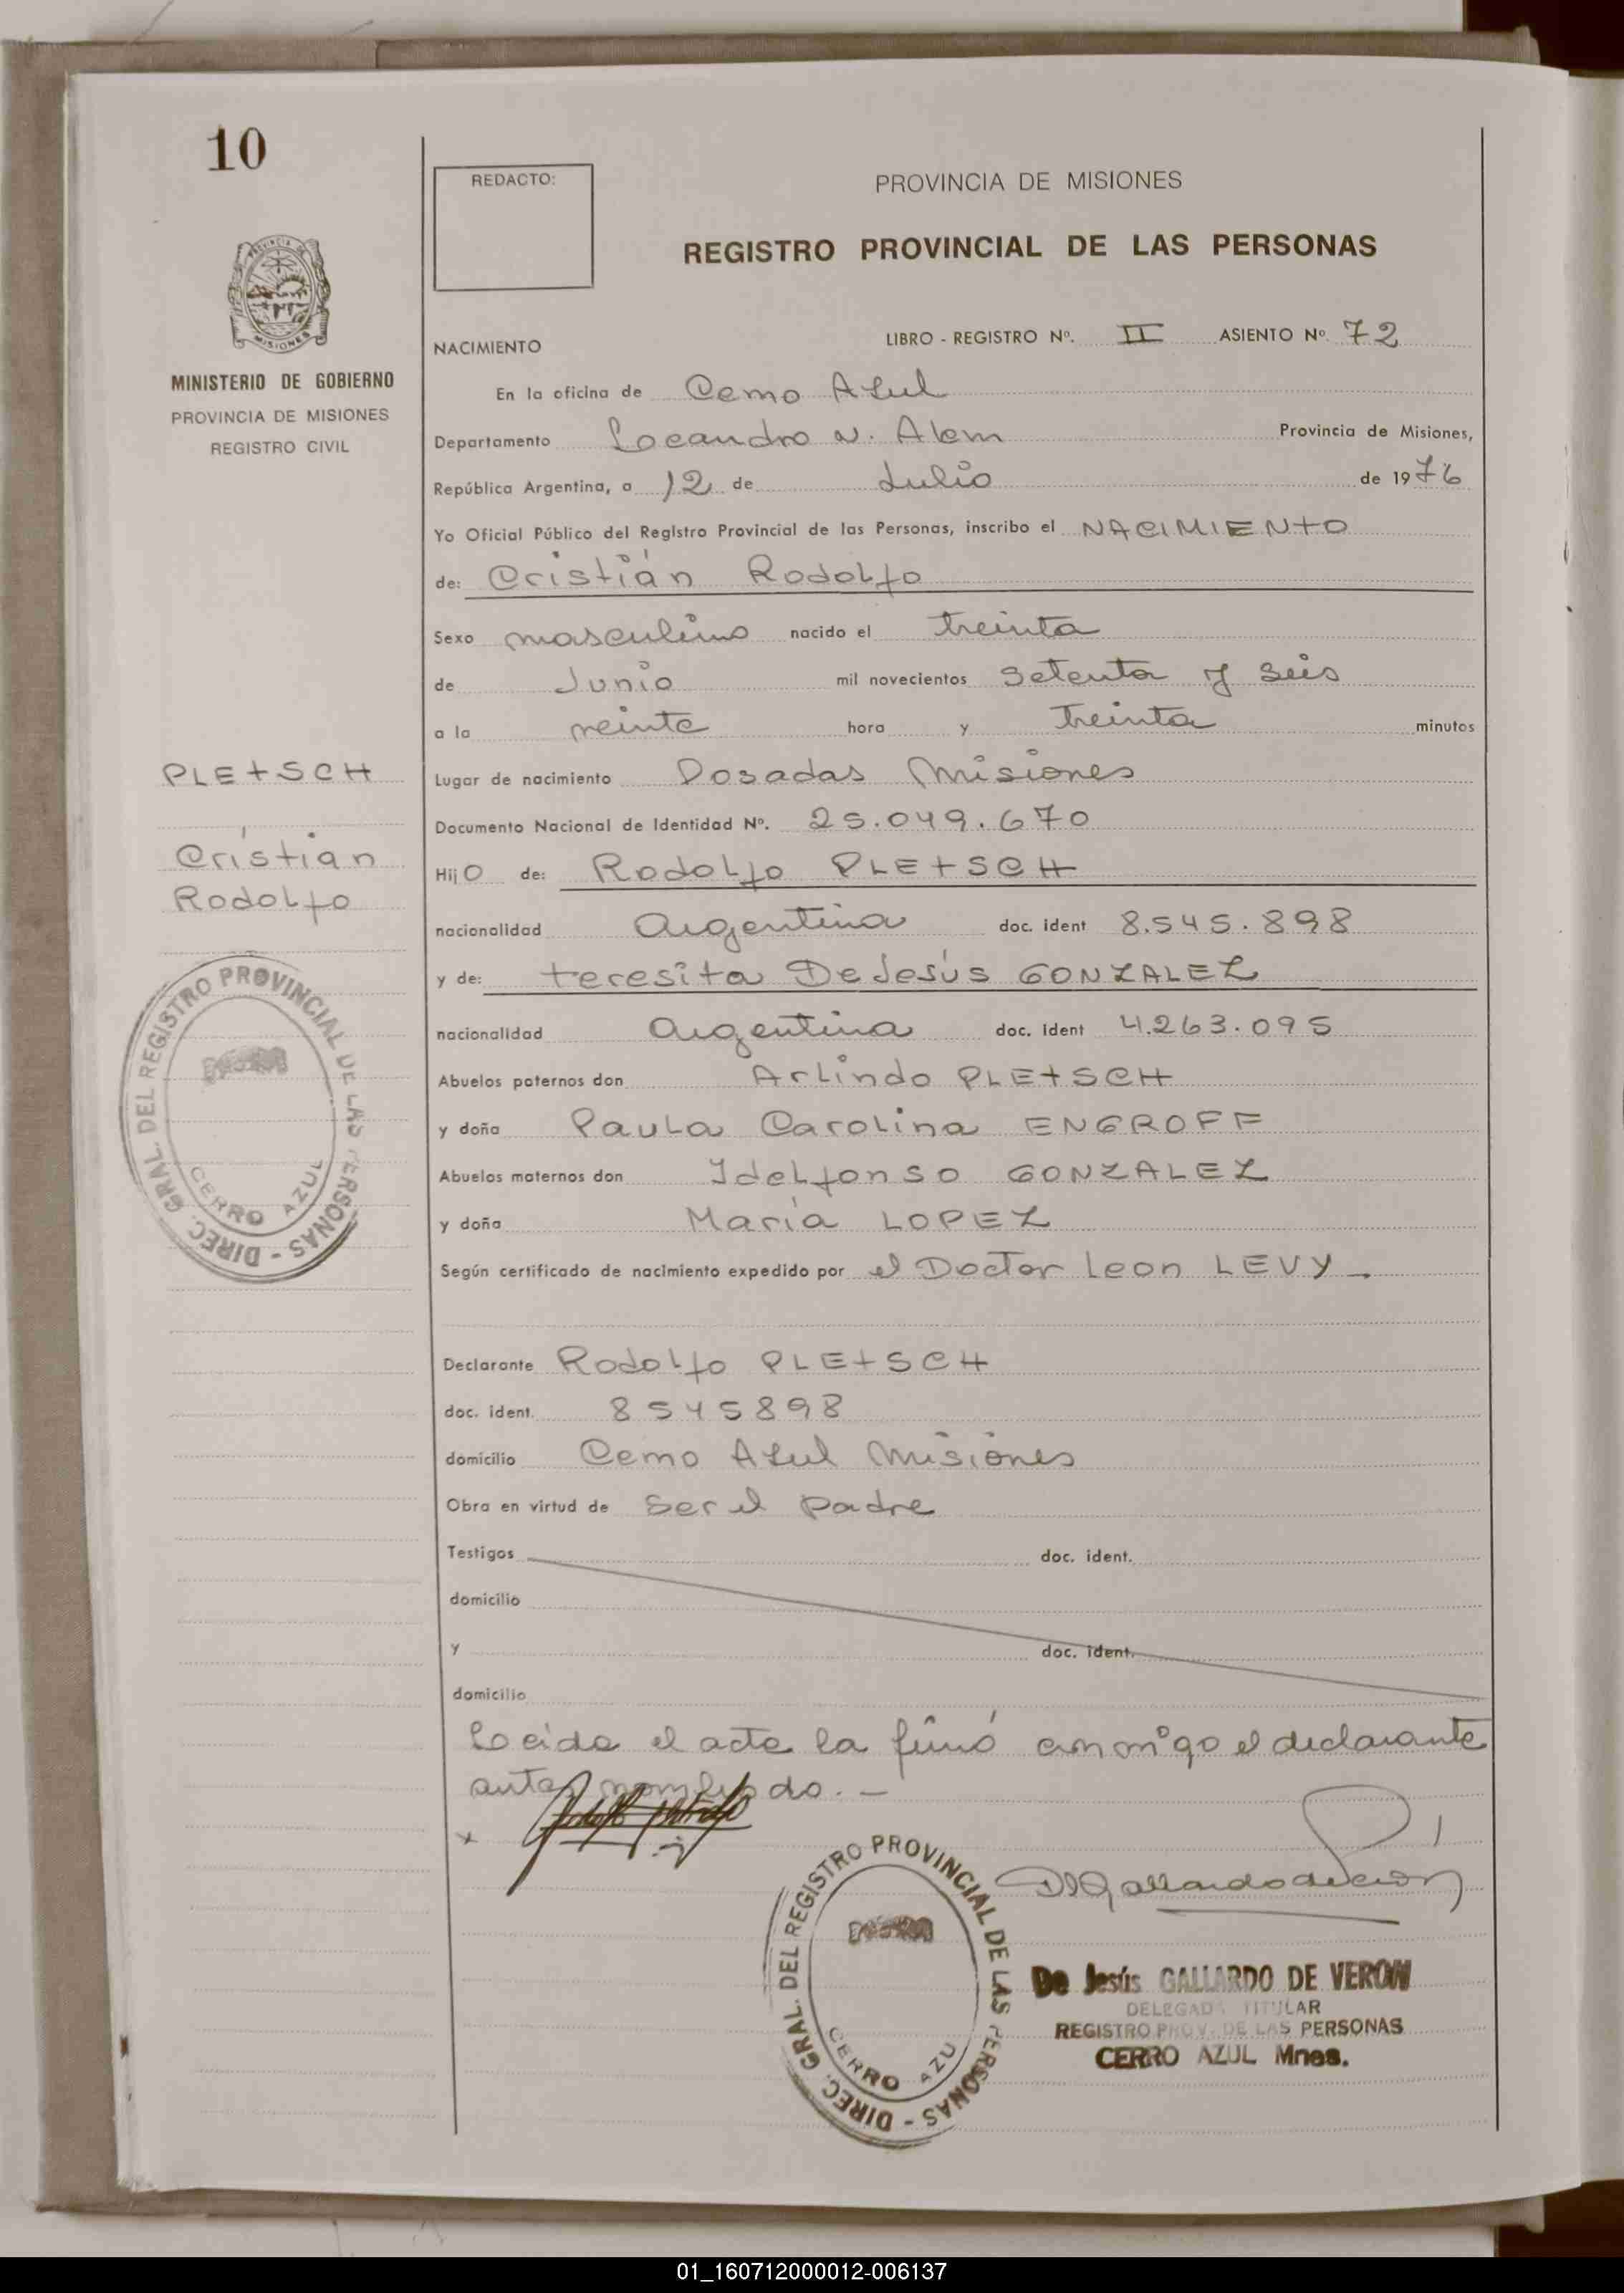 10
REDACTO:
PROVINCIA DE MISIONES
REGISTRO PROVINCIAL DE LAS PERSONAS
PROVINCIA DE MISIONES
MINISTERIO DE GOBIERNO
PROVINCIA DE MISIONES
REGISTRO CIVIL
NACIMIENTO LIBRO - REGISTRO Nº. II ASIENTO Nº. 72
En la oficina de Cerro Azul
Departamento Leandro N. Alem Provincia de Misiones,
República Argentina, a 12 de Julio de 1976
Yo Oficial Público del Registro Provincial de las Personas, inscribo el NACIMIENTO
de: Cristián Rodolfo
Sexo masculino nacido el treinta
de Junio mil novecientos setenta y seis
a la veinte hora y treinta minutos
Lugar de nacimiento Posadas Misiones
Documento Nacional de Identidad Nº. 25.049.670
Hijo de: Rodolfo PLETSCH
nacionalidad Argentina doc. ident 8.545.898
y de: Teresita De Jesús GONZALEZ
nacionalidad Argentina doc. ident 4.263.095
Abuelos paternos don Arlindo PLETSCH
y doña Paula Carolina ENGROFF
Abuelos maternos don Idelfonso GONZALEZ
y doña María LOPEZ
Según certificado de nacimiento expedido por el Doctor Leon LEVY -
Declarante Rodolfo PLETSCH
doc. ident. 8545898
domicilio Cerro Azul Misiones
Obra en virtud de ser el padre
Testigos doc. ident.
domicilio
y doc. ident.
domicilio
Leída el acta la firmó conmigo el declarante
antes nombrado. -
x
PLETSCH
Cristián
Rodolfo
DIREC. GRAL. DEL REGISTRO PROVINCIAL DE LAS PERSONAS -
CERRO AZUL
DIREC. GRAL. DEL REGISTRO PROVINCIAL DE LAS PERSONAS -
CERRO AZU
De Jesús GALLARDO DE VERON
DELEGADA TITULAR
REGISTRO PROV. DE LAS PERSONAS
CERRO AZUL Mnes.
01_160712000012-006137